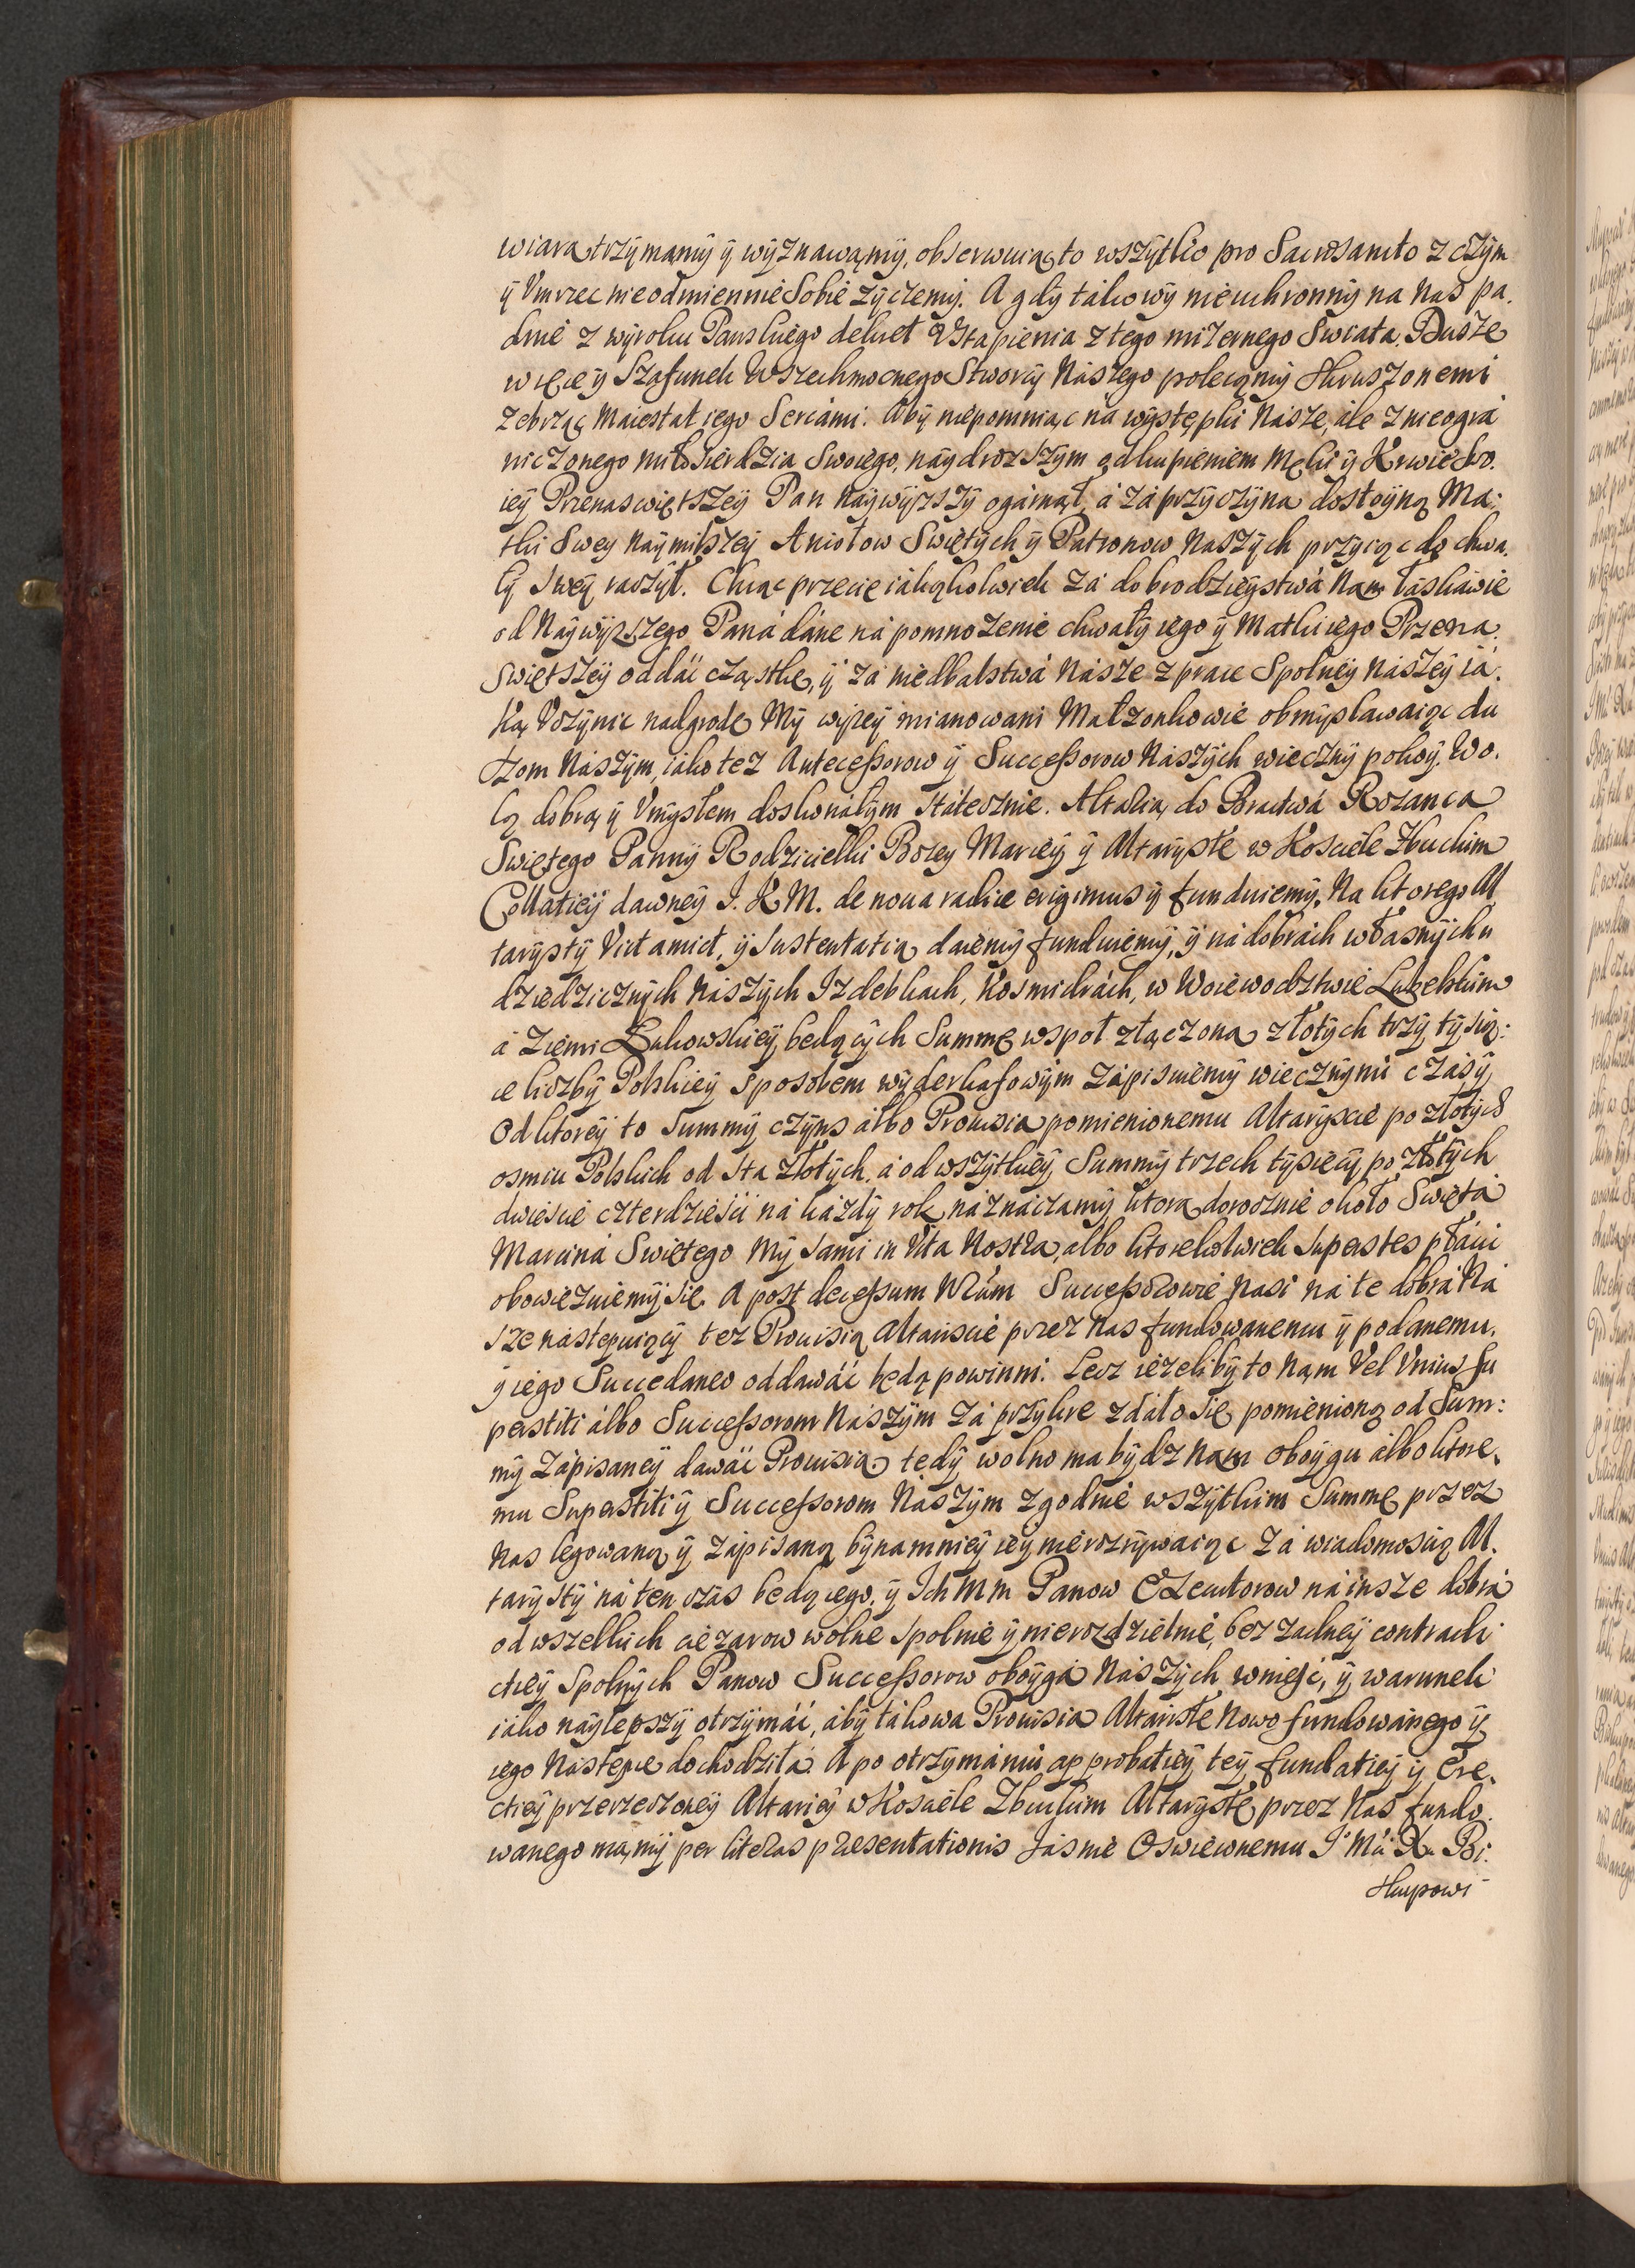 wiarą trzÿmamÿ ÿ wÿznawamÿ, obserwuiąc to wszÿtko pro Sacrosancto z czÿm
ÿ Vmrzec nieodmiennie Sobie zÿczemÿ. A gdÿ takowÿ nieuchronnÿ na Nas pa.
dnie z wÿroku Panskiego dekret Vstąpienia z tego mizernego Swiata. Dusze
w ręce ÿ Szafunek Wszechmocnego Stworcÿ Nászego polecąmÿ skruszonemi
zebrząc Maiestat iego Sercámi. Abÿ niepomniąc ná wÿstępki Násze, ále z nieográ
niczonego miłosierdzia Swoiego, náÿdrozszÿm odkupieniem Męki ÿ Krwie Swo.
ieÿ Przenaswiętszeÿ Pan Naÿwÿzszÿ ogárnął, á zá przÿczÿną dostoÿną Ma:
tki Sweÿ Naÿmilszeÿ Aniołow Swiętÿch ÿ Patronow Naszÿch przÿiąc do chwa.
łÿ Sweÿ raczÿł. Chcąc przecie iákążkolwiek zá dobrodzieÿstwá Nam łáskáwie
od Náÿwÿzszego Paná dáne ná pomnozenie chwałÿ iego ÿ Matki iego Przena.
Swiętszeÿ oddáć cząstkę, ÿ zá niedbalstwá Násze z prace Spolneÿ Nászeÿ iá.
ką Vczÿnic nadgrodę Mÿ wÿzeÿ mianowani Małzonkowie obmÿslawaiąc du
szom Nászÿm, iáko tez Antecessorow ÿ Successorow Nászÿch wiecznÿ pokoÿ, Wo.
lą dobrą ÿ Vmÿsłem doskonáłÿm Státecznie. Altárią do Bractwá Rozanca
Swiętego Pannÿ Rodzicielki Bozeÿ Marieÿ ÿ Altarÿstę w Kosciele Zbuckim
Collatieÿ dawneÿ J. K. M. de noua radice erigimus ÿ funduiemÿ. Na ktorego Al
tarÿstÿ Victamict, ÿ Sustentatią daiemÿ funduiemÿ, ÿ ná dobrách własnÿch
dziedzicznÿch Nászÿch Izdebkach, Kosmidrách, w Woiewodztwie Lubelskim
á Ziemi Łukowskieÿ będącÿch Summę wspoł złączoną złotÿch trzÿ tÿsią:
ce liczbÿ Polskieÿ sposobem wÿderkafowÿm zápisuiemÿ wiecznÿmi czásÿ
Od ktoreÿ to Summÿ czÿns álbo Prouisią pomienionemu Altarÿscie po złotÿch
osmiu Polskich od sta złotÿch, á od wszÿtkieÿ Summÿ trzech tÿsięcÿ po złotÿch
dwiescie czterdziesci ná káżdÿ rok náznáczamÿ ktorą dorocznie około Swiętá
Marciná Swiętego Mÿ sami in Vita Nostra, albo ktorekolwiek Superstes płácic
obowięzuiemÿ się. A post decessum Nrum Successorowie Nasi ná te dobrá Ná
sze nástepuiącÿ tez Prouisią Altariscie przez Nas fundowanemu ÿ podanemu.
ÿ iego Succedaneo oddawáć będą powinni. Lecz ieżelibÿ to Nam Vel Vnius su
perstiti álbo Successorom Nászÿm zá przÿkre zdáło się pomienioną od Sum:
mÿ Zápisaneÿ dawáć Prouisią, tedÿ wolno ma bÿdz Nam oboÿgu álbo ktore.
mu Superstiti ÿ Successorom Nászÿm zgodnie wszÿtkim Summę przez
Nas legowaną ÿ zápisaną bÿnamnieÿ ieÿ nierozrÿwaiąc zá wiadomoscią Al.
tarÿstÿ ná ten czás będącego, ÿ Ich Mm Panow Exekutorow ná insze dobrá
od wszelkich cięzarow wolne spolnie ÿ nierozdzielnie, bez zadneÿ contradi
ctieÿ Spolnÿch Panow Successorow oboÿgá Nászÿch wniesć, ÿ warunek
iáko náÿlepszÿ otrzÿmáć, ábÿ tákowa Prouisia Altaristę Nowo fundowánego ÿ
iego Nástepcę dochodziłá. A po otrzÿmániu approbatieÿ teÿ fundatieÿ ÿ Ere.
ctieÿ przerzeczoneÿ Altarieÿ w Kosciele Zbuckim Altarÿstę przez Nas fundo.
wanego mamÿ per literas præsentationis Jasnie Oswieconemu J Mći X. Bi:
skupowi